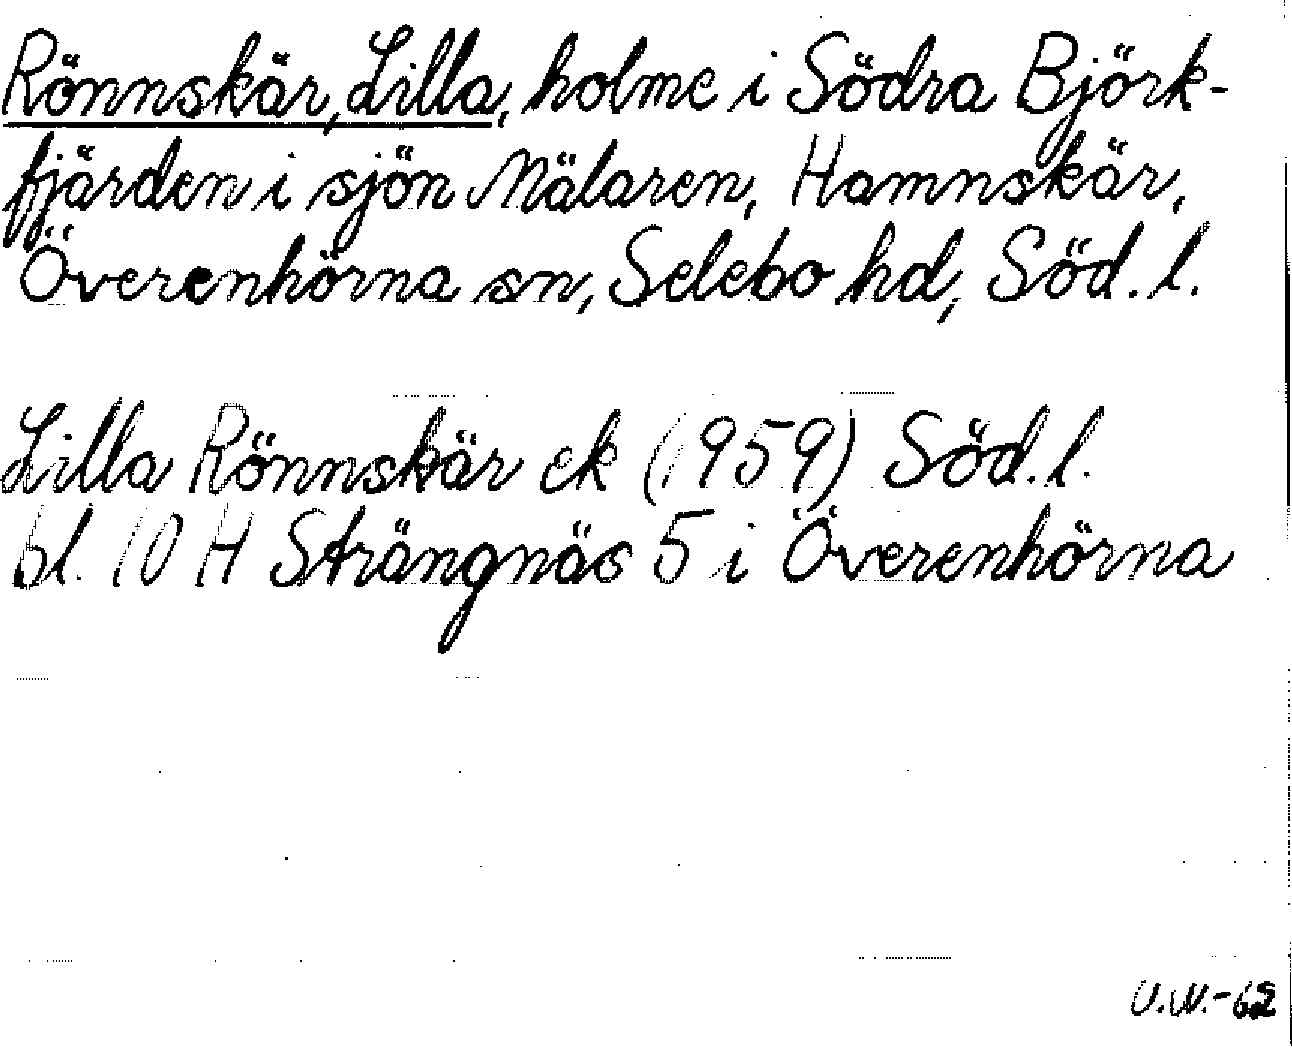 Rönnskär, Lilla, holme i Södra Björk-
fjärden i sjön Mälaren, Hamnskär,
Överenhörna sn, Selebo hd, Söd. l.
Lilla Rönnskär ek (1959) Söd. l.
bl. 10 H Strängnäs 5 i Överenhörna
U.W.-62